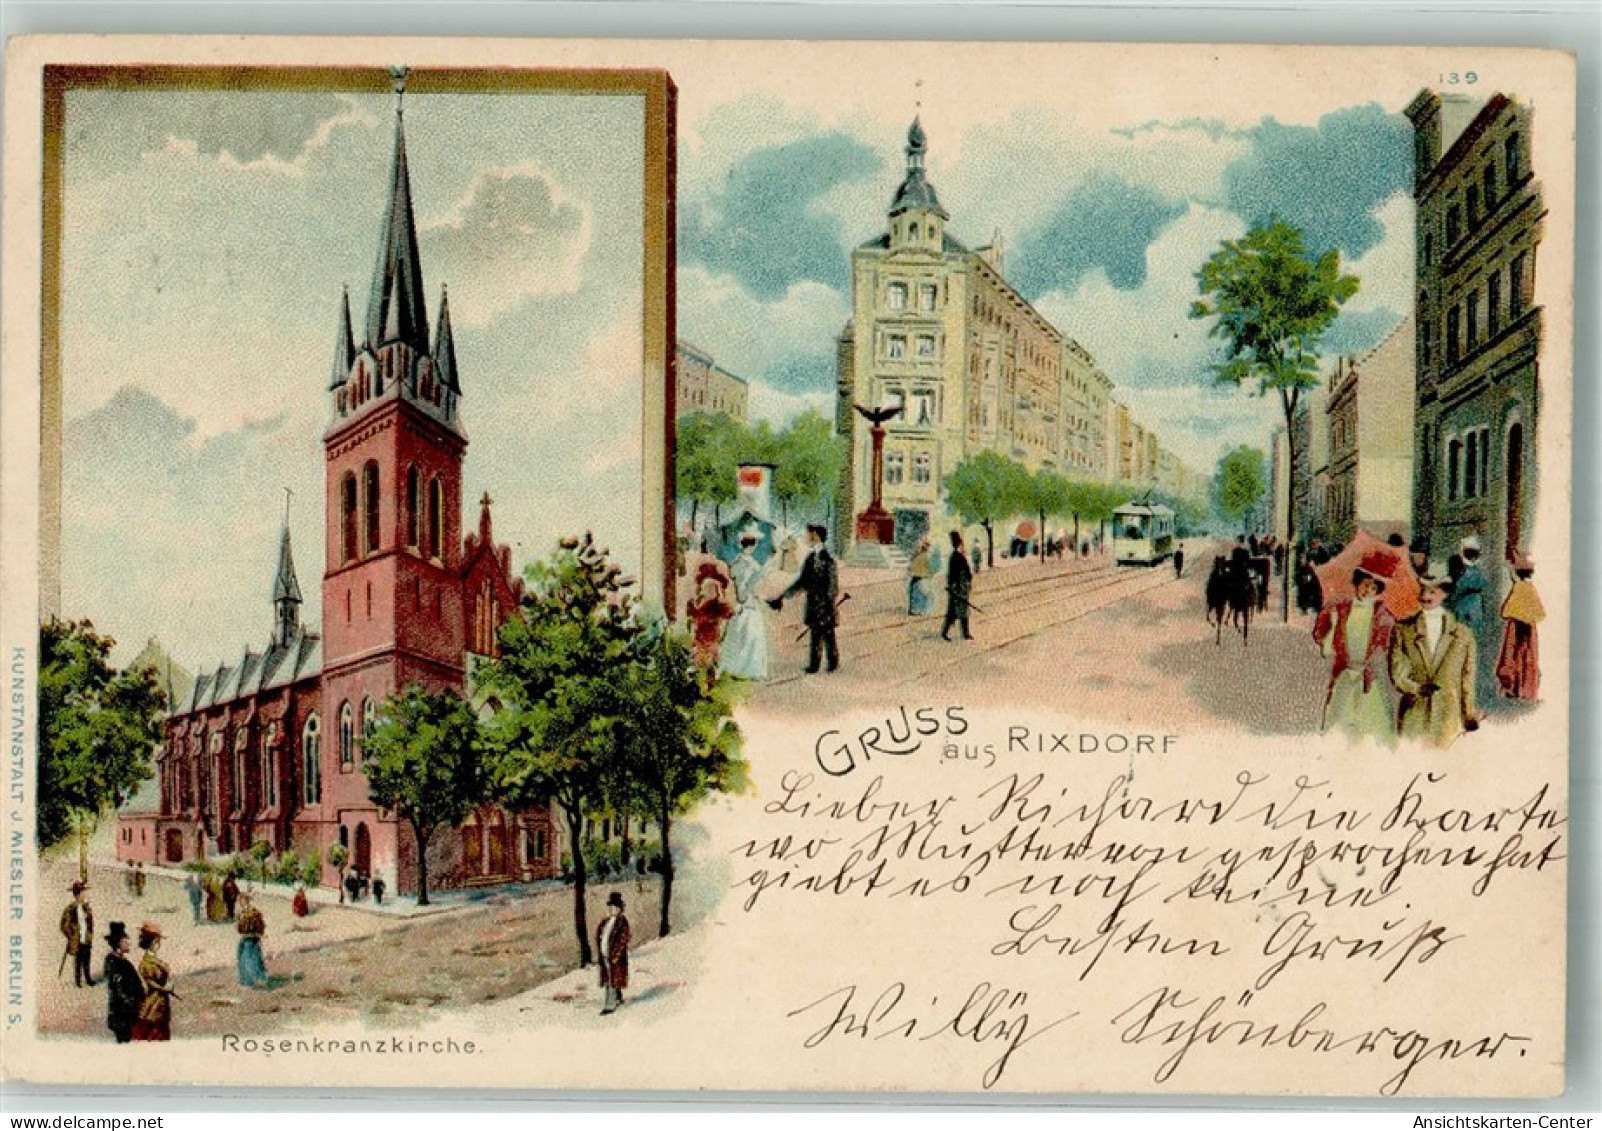 139
GRUSS aus RIXDORF
Lieber Richard die Karte
wo Mutter von gesprochen hat
giebt es noch keine.
Besten Gruß
Willy Schönberger.
Rosenkranzkirche.
KUNSTANSTALT J. MIESLER BERLIN S.
Ansichtskarten-Center